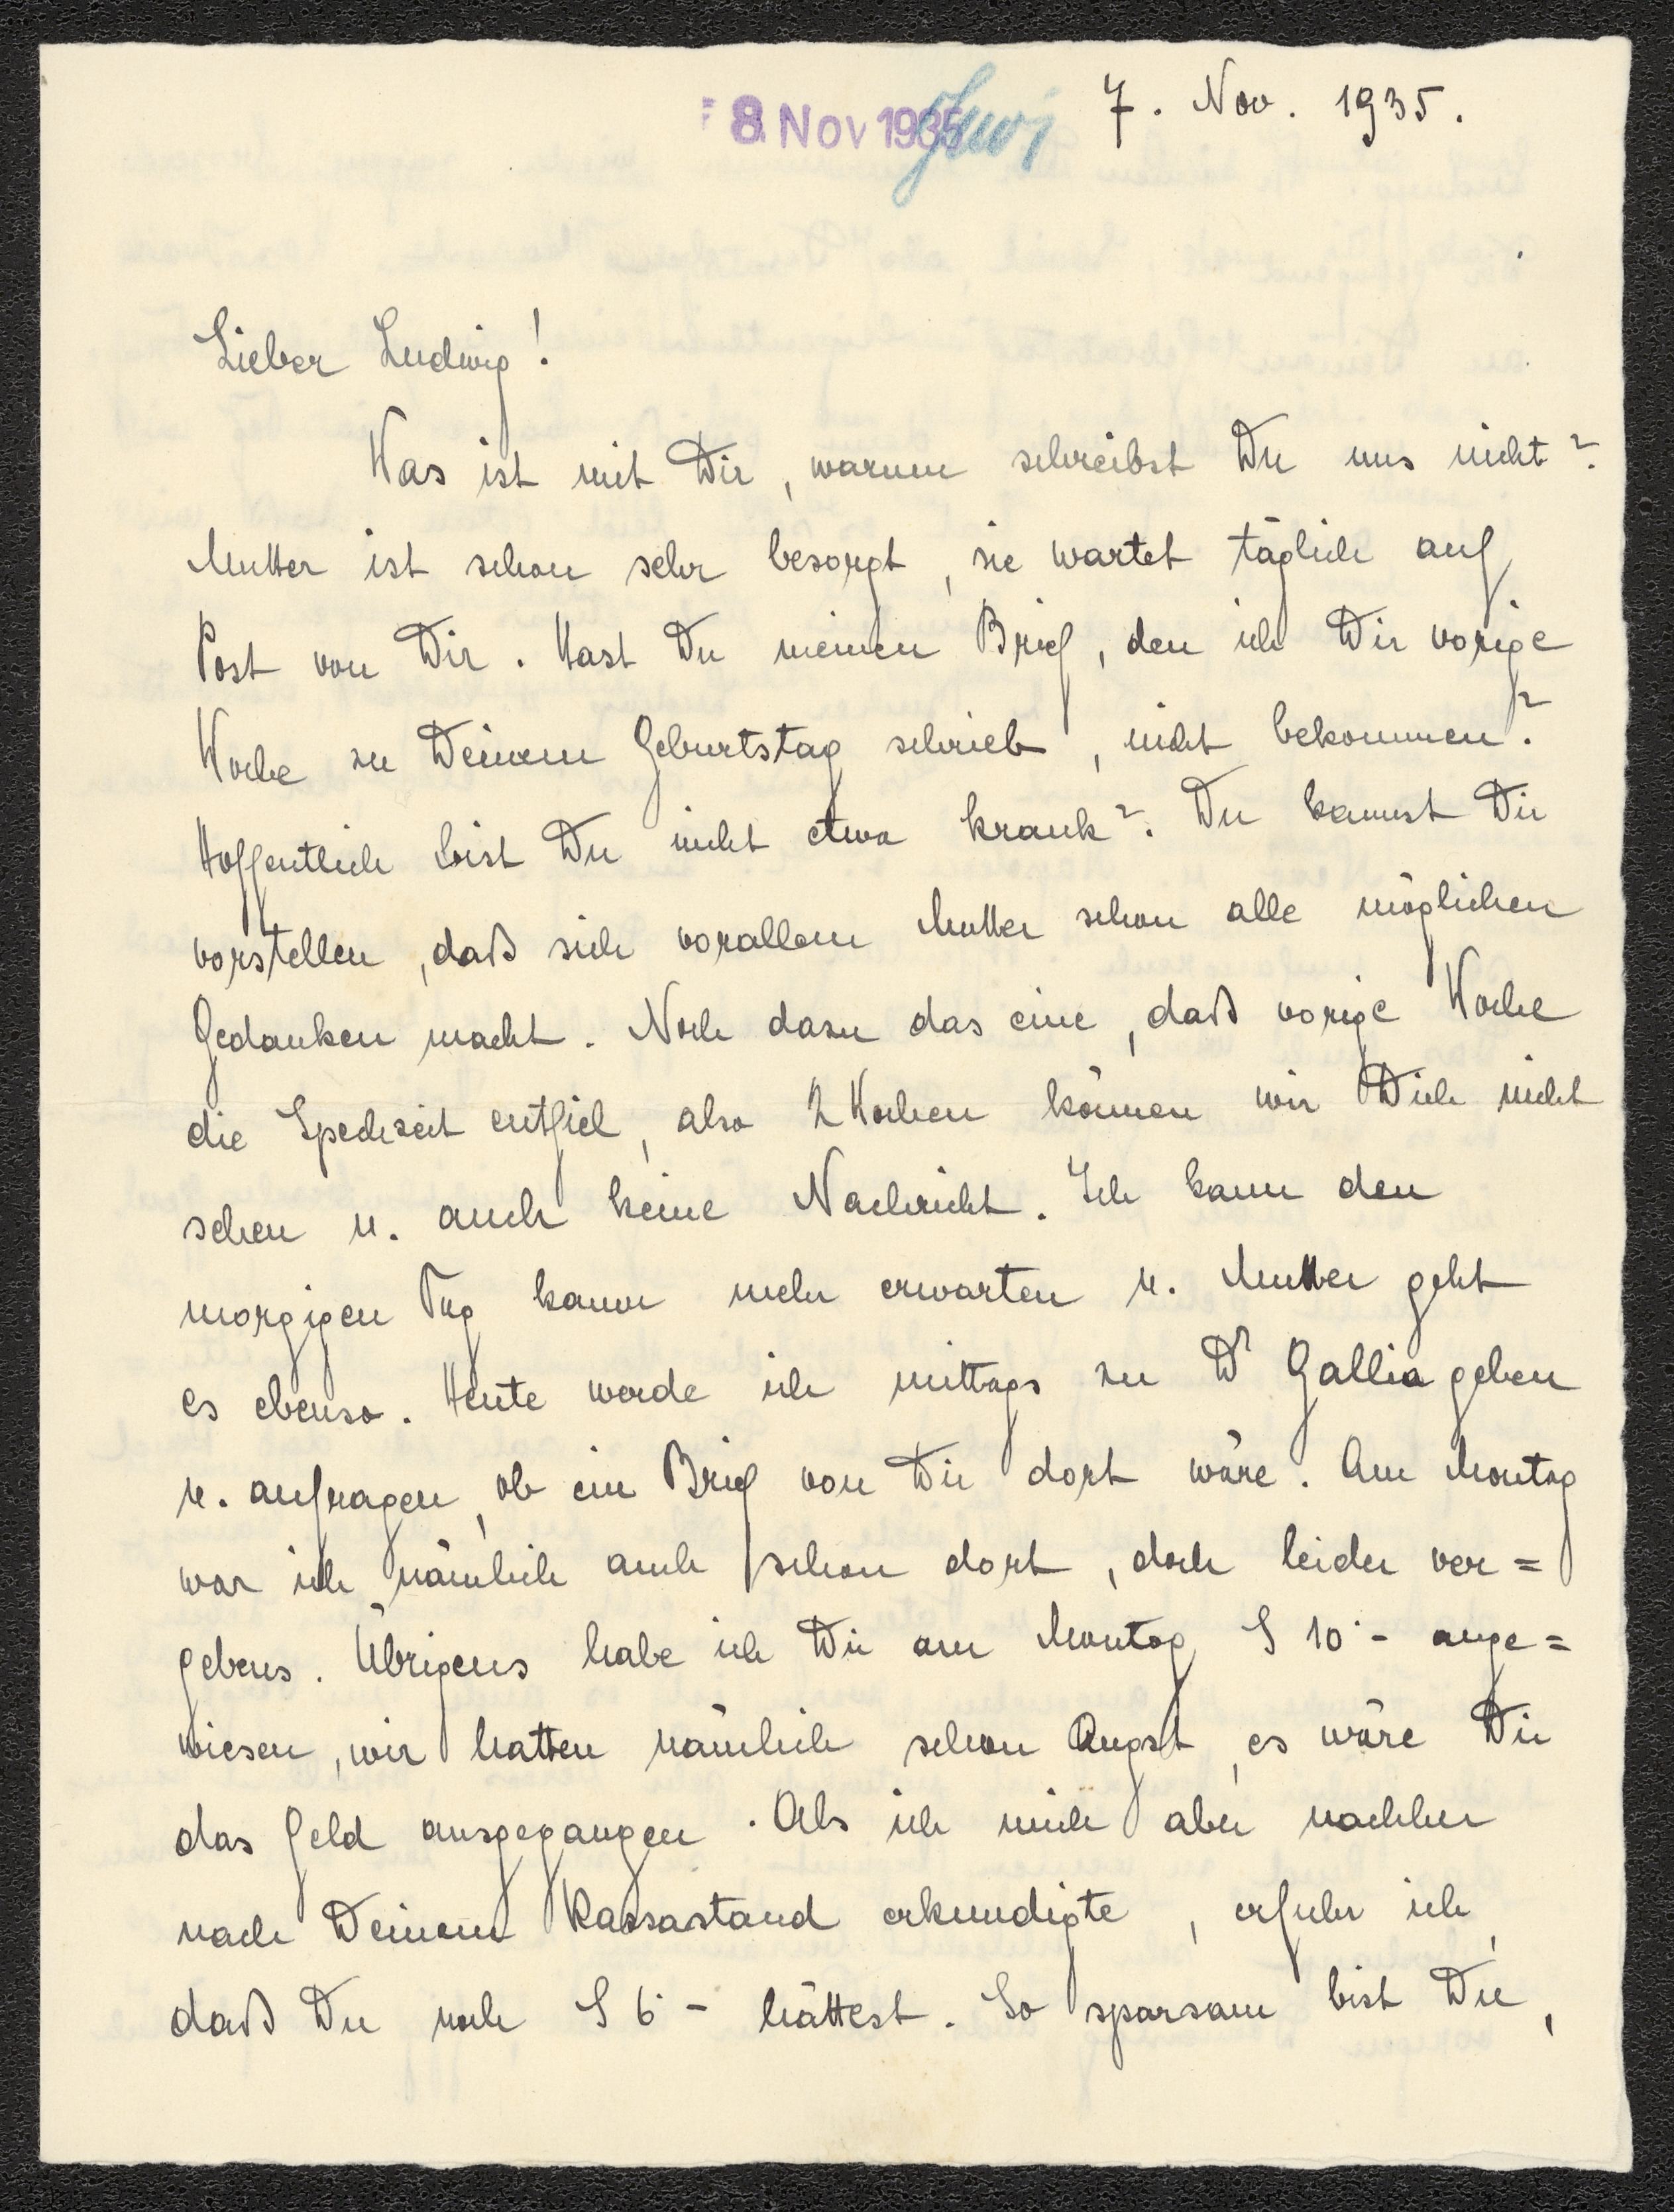 8. Nov 1935
7. Nov. 1935.
Lieber Ludwig!
Was ist mit Dir, warum schreibst Du uns nicht?
Mutter ist schon sehr besorgt, sie wartet täglich auf
Post von Dir. Hast Du meinen Brief, den ich Dir vorige
Woche zu Deinem Geburtstag schrieb, nicht bekommen?
Hoffentlich bist Du nicht etwa krank? Du kannst Dir
vorstellen, daß sich vorallem Mutter schon alle möglichen
Gedanken macht. Noch dazu das eine, daß vorige Woche
die Spechzeit entfiel, also 2 Wochen können wir Dich nicht
sehen u. auch keine Nachricht. Ich kann den
morgigen Tag kaum mehr erwarten u. Mutter geht
es ebenso. Heute werde ich mittags zu Dr Gallia gehen
u. anfragen, ob ein Brief von Dir dort wäre. Am Montag
war ich nämlich auch schon dort, doch leider ver=
gebens. Übrigens habe ich Dir am Montag S 10·- ange=
wiesen, wir hatten nämlich schon Angst, es wäre Dir
das Geld ausgegangen. Als ich mich aber nachher
nach Deinem Kassastand erkundigte, erfuhr ich,
daß Du noch S 6·- hättest. So sparsam bist Du,